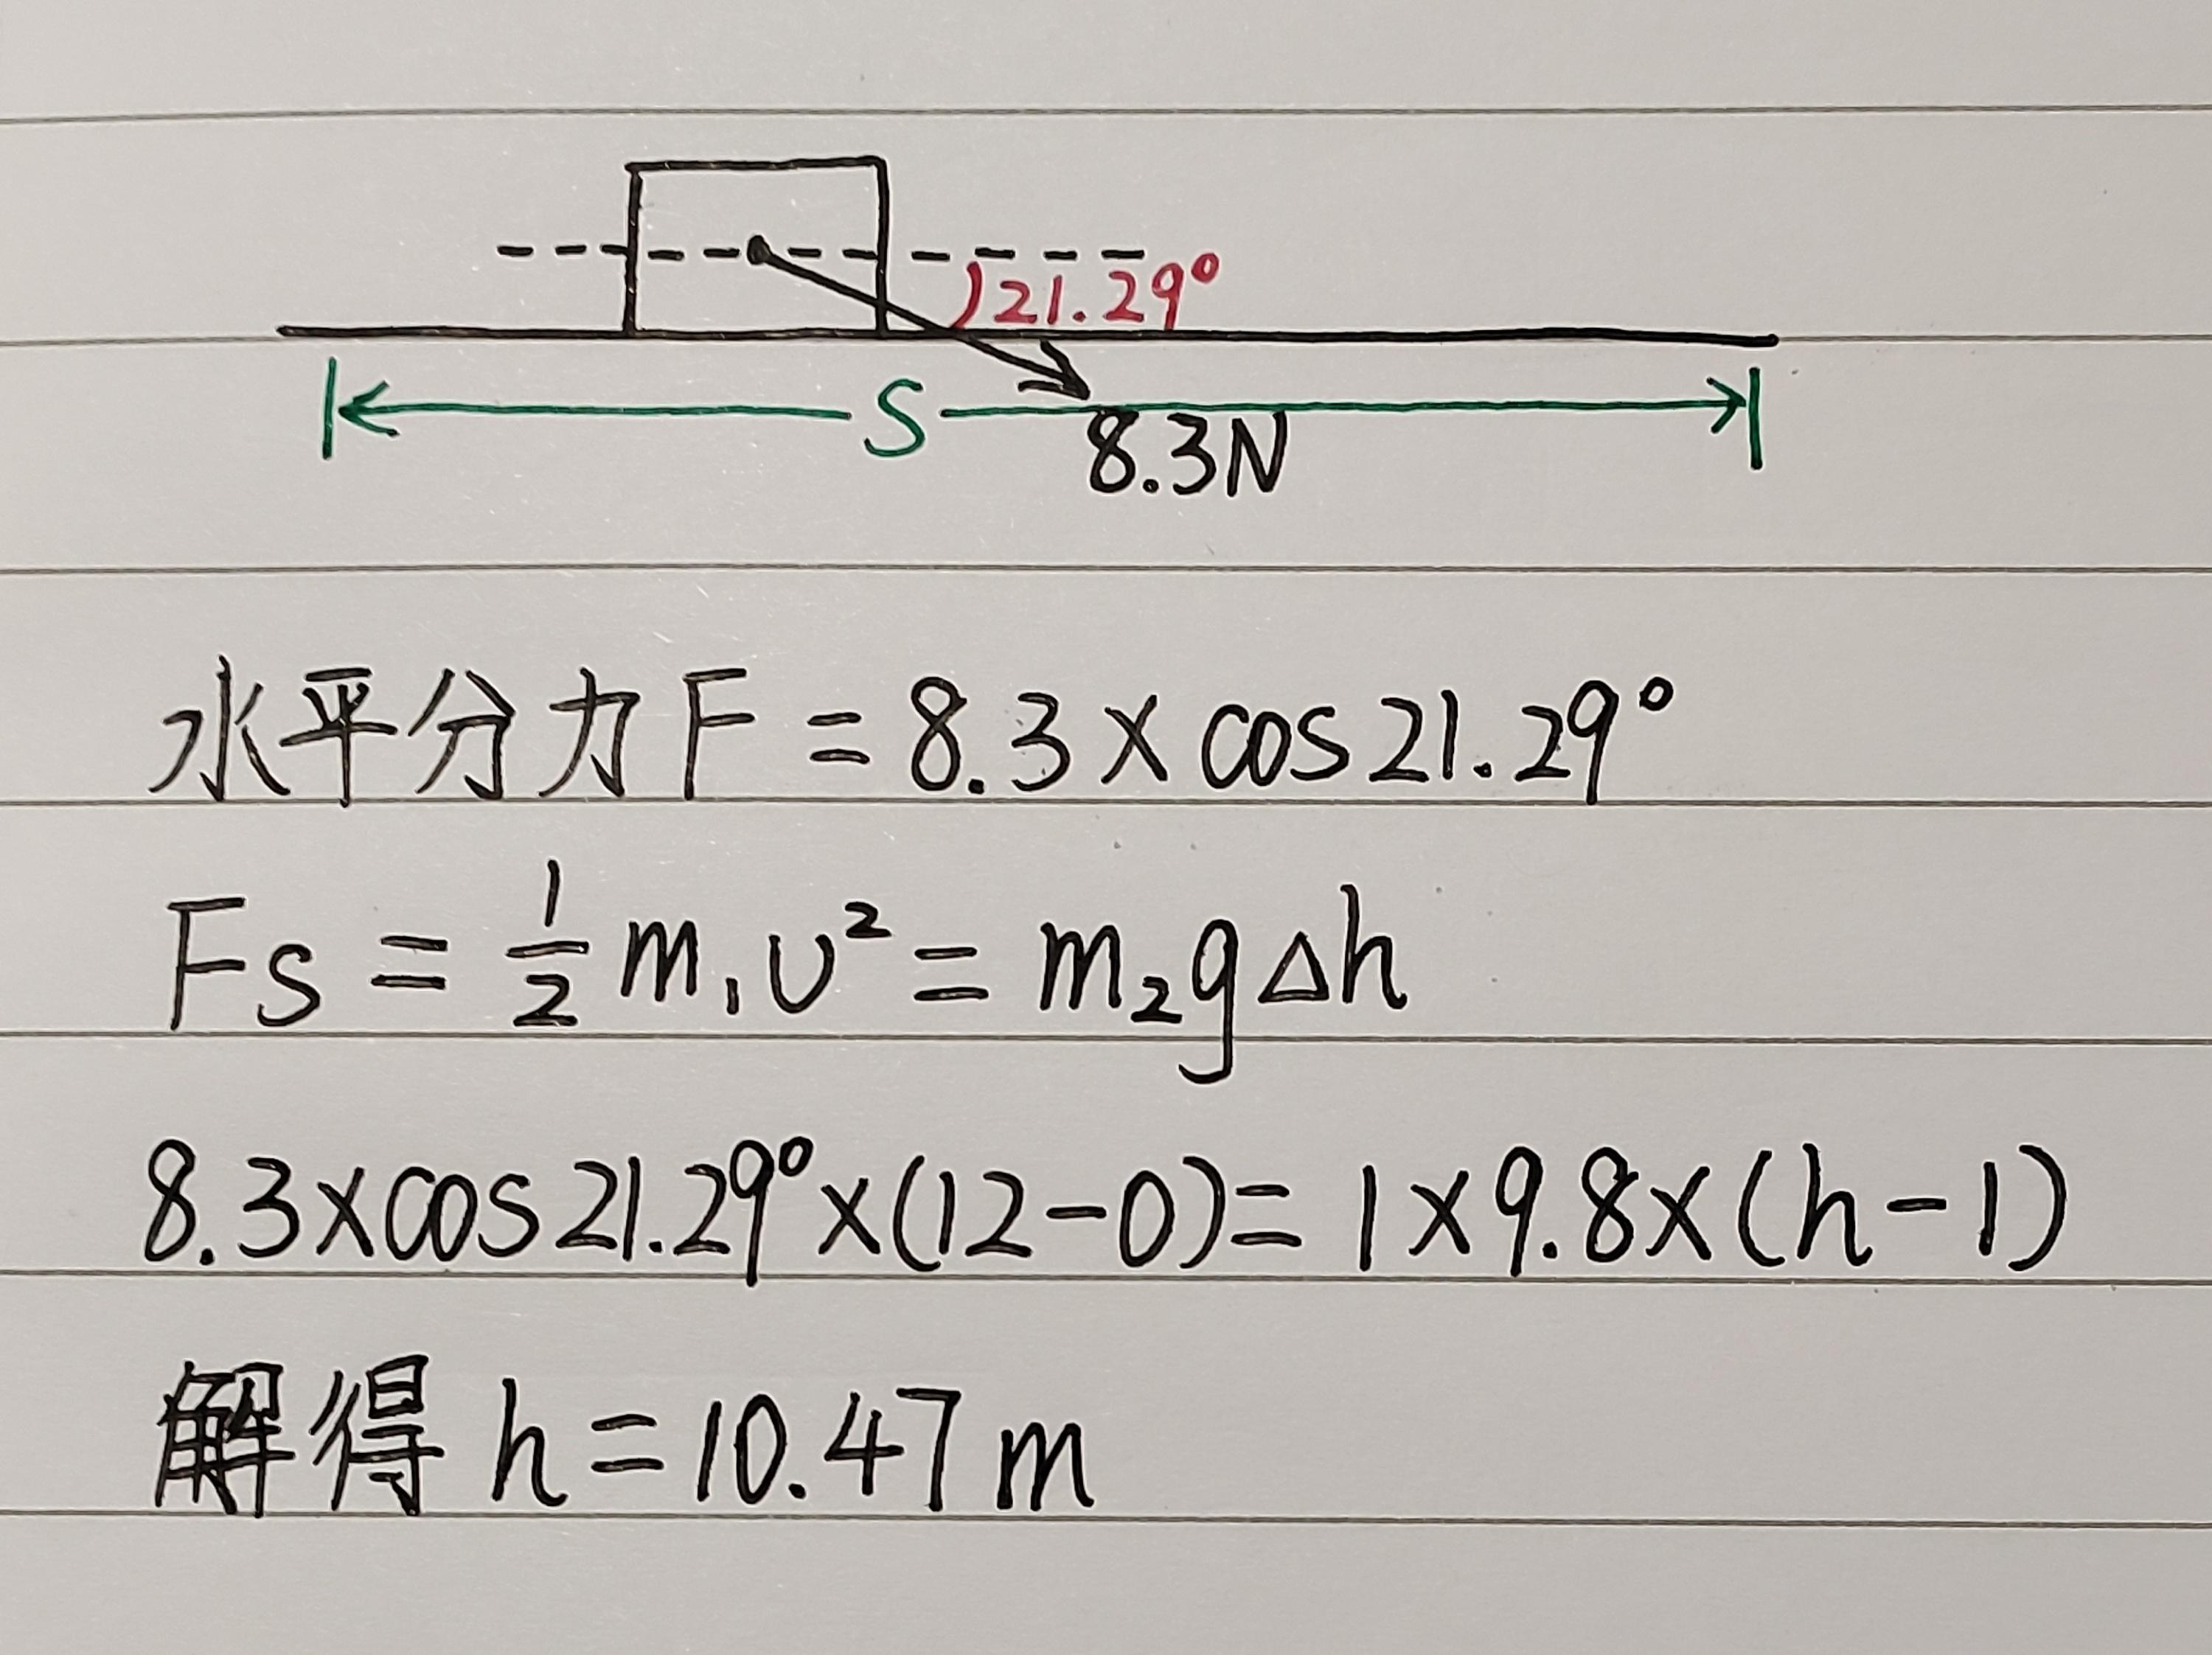 21.29°
S
8.3N
水平分力F=8.3×cos21.29°
Fs=½m₁υ²=m₂g△h
8.3×cos21.29°×(12-0)=1×9.8×(h-1)
解得h=10.47m